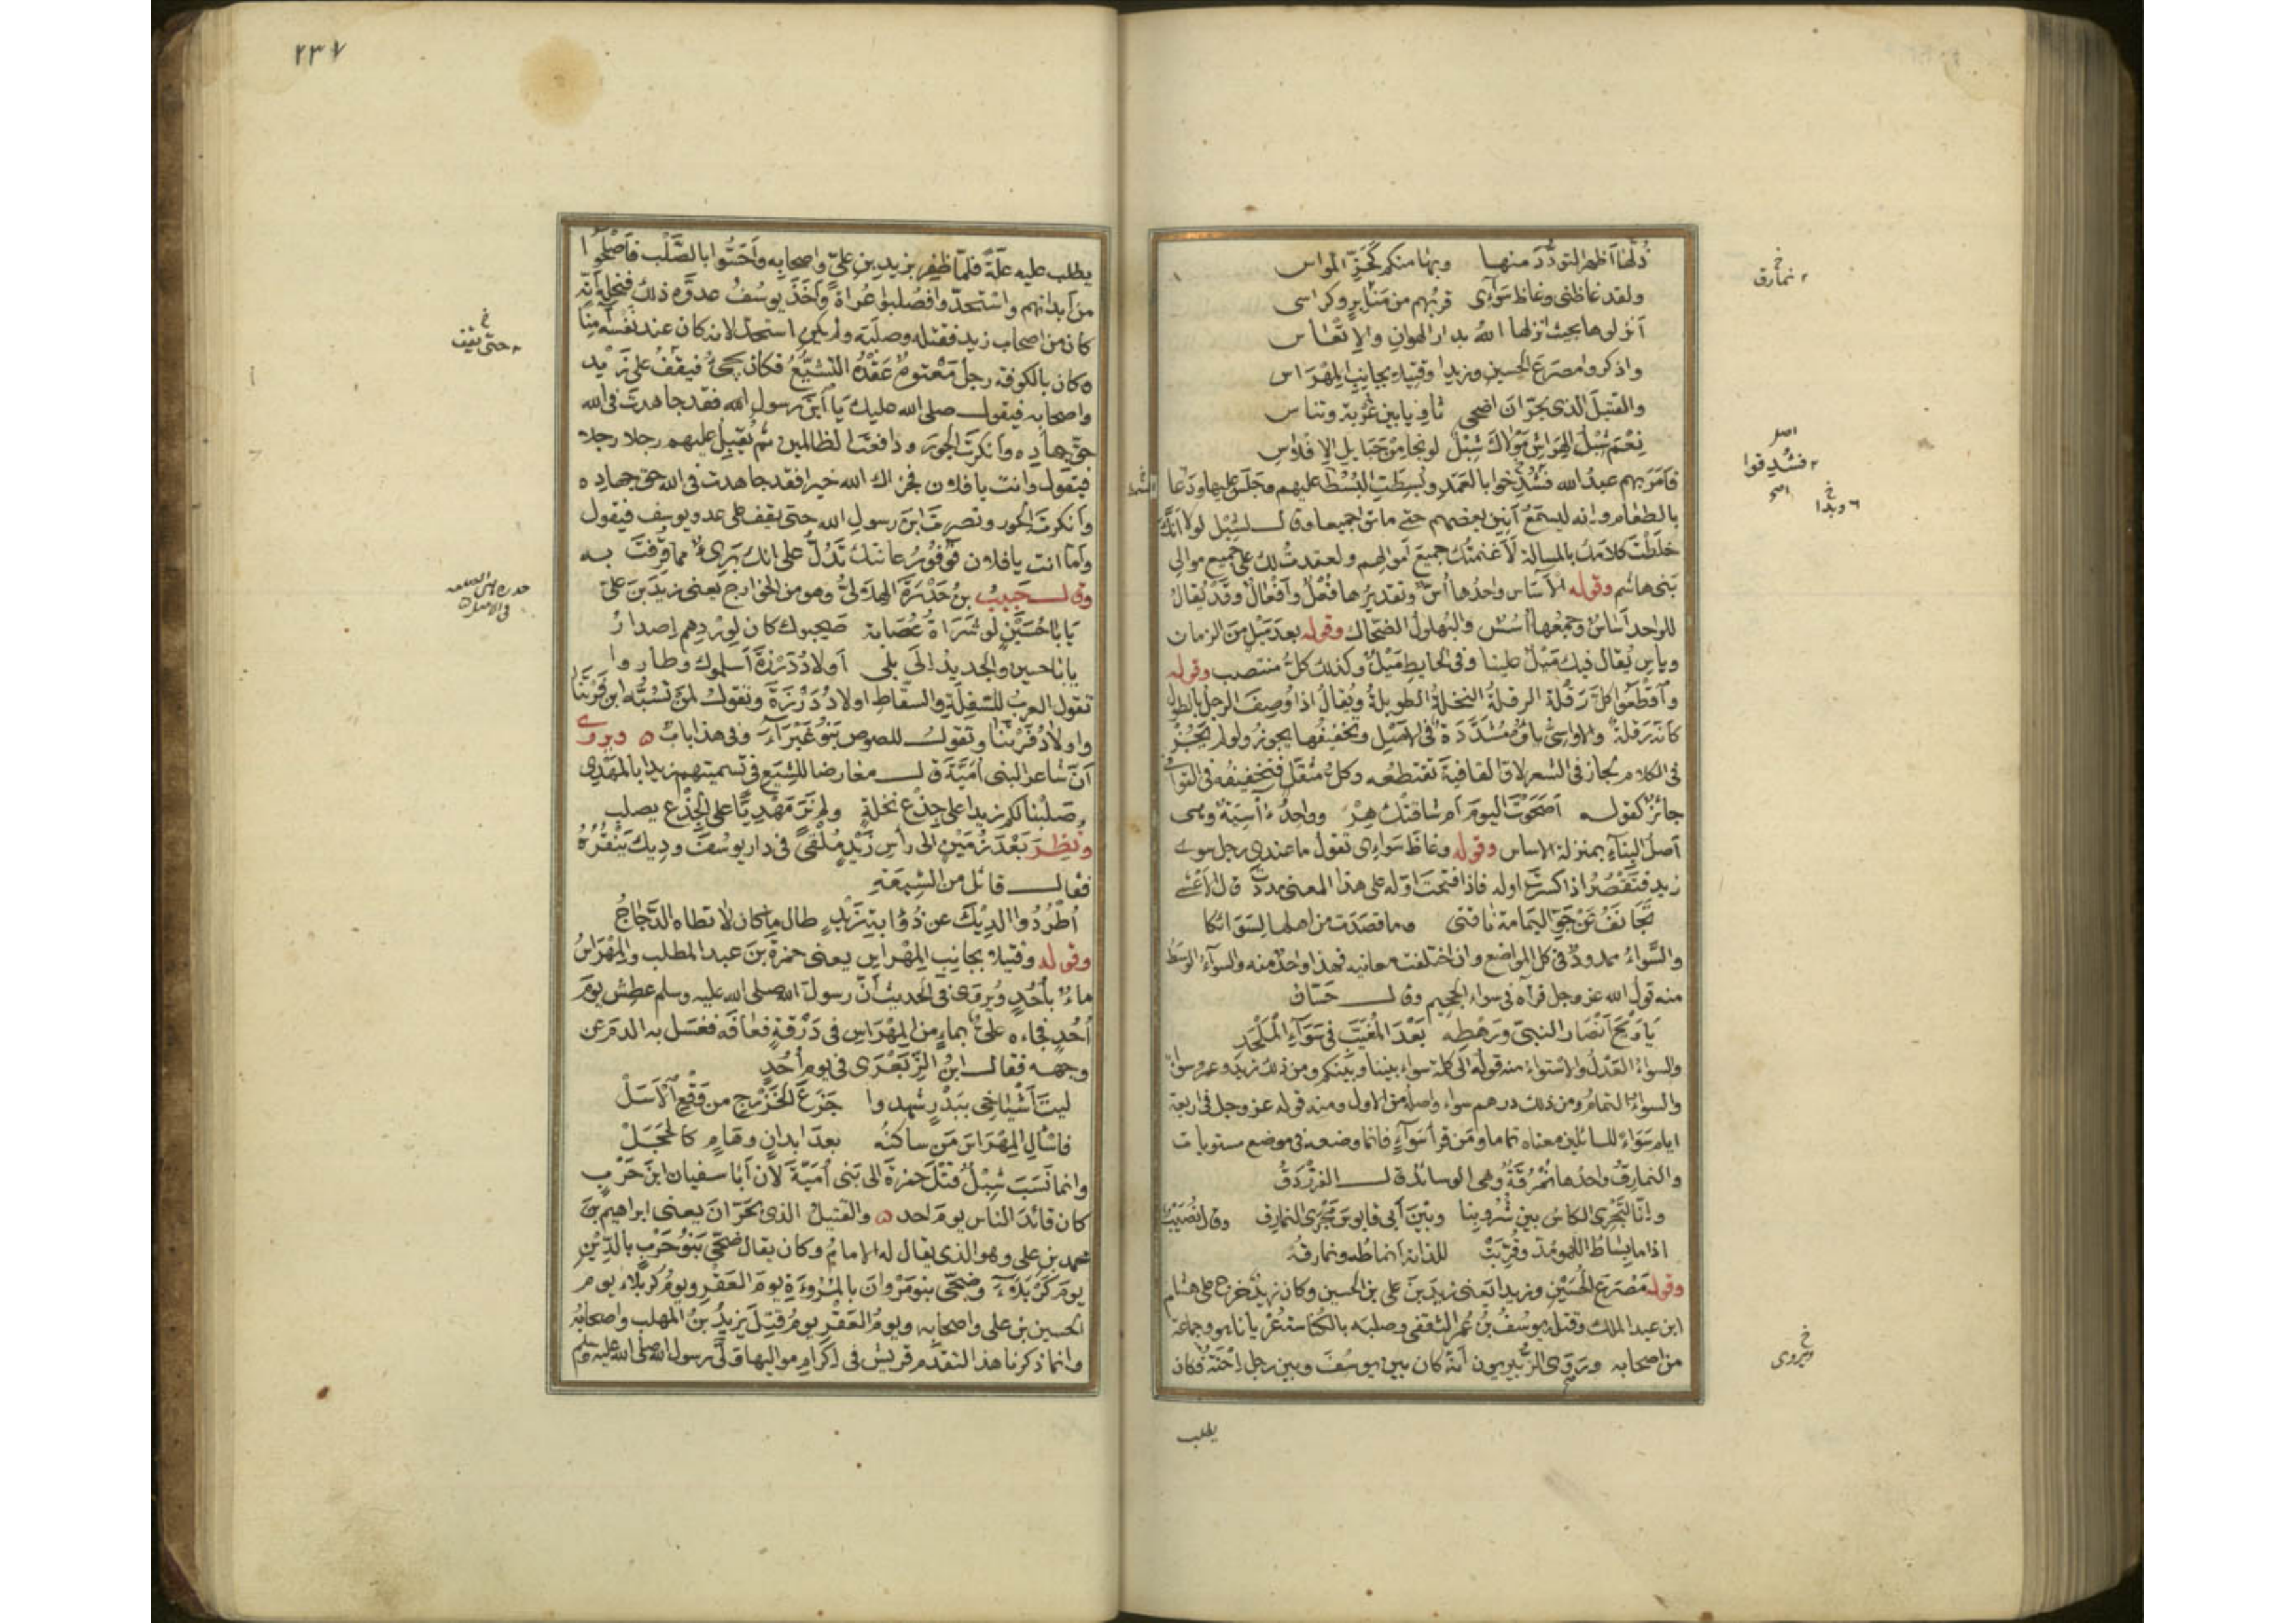 ذُلُّهَا أظهر التودُّدَ منها وبها منكم كَحَزِّ المواس
ولقد غاظنى وغاظ سَوَآءِى قربُهم من مَنَابِرٍ وكراسى
أنزلوها بحيث انزلها اللهُ بدار الهوانِ والاِتْعَاس
واذكروا مصرعَ الحسين وزيدا وقتيلا بجانب المِهْرَاس
والقتيلَ الذى بحَرّانَ اضحى ثاويا بين غُرْبَة وتناس
نِعْمَ شِبْلُ الهِرَاشِ مَوْلاكَ شِبْلٌ لو نجا من حَبَايل الإفلاس
فأمَرَ بهم عبدُ الله فشُدِخوا بالعَمَدِ وبُسِطَتِ البُسُطُ عليهم وجَلَسَ عليها ودَعَا
بالطعام وانه ليسمَعُ أنينَ بعضهم حتى ماتوا جميعا وقال لشِبْل لولا أنَّكَ
خلَطْتَ كلامَك بالمسالة لأغنمتُك جميعَ أموالهم ولعقدتُ لك على جميع موالى
بَنى هاشم وقوله الآسَاس واحدُها أُسٌّ وتقديرُها فُعْلٌ وأفْعَالٌ وقد يُقالُ
للواحد أسَاسٌ وجمعُها أُسُسٌ والبُهلولُ الضحّاك وقوله بعد مَيْلٍ من الزمان
وياسٍ يُقال فيك مَيْلٌ علينا وفى الحايط مَيَلٌ وكذلك كلُّ منتصب وقوله
وأقطعوا كلَّ رَقْلة الرقلةُ النخلةُ الطويلةُ ويُقالُ اذا وُصِفَ الرجلُ بالطول
كأنه رَقْلةٌ والاواسِىُّ ياؤُه مُشَدَّدَةٌ فى الاصْلِ وتخفيفُها يجوزُ ولو لم يَجُزْ
فى الكلام لجاز فى الشعر لان القافيةَ تقتطعُه وكلُّ مثقَّلٍ فتخفيفُه فى القوافى
جائزٌ كقوله أصَحَوْتَ اليومَ أم شاقتْك هِرّ وواحدُه آسِيَةٌ وهى
أصلُ البِنَاءِ بمنزلة الاساس وقوله وغاظَ سَوَاءِى تقول ما عندى رجل سوى
زيد فتَقْصُرُ اذا كسرتَ اوله فاذا فتحتَ اوّله على هذا المعنى مددتَ قال الاعشى
تَجَانَفُ عَنْ جَوِّ اليمامة نَاقتى وما قصَدَت من اهلها لِسَوَائكا
والسَّواءُ ممدودٌ فى كل المواضع وان اختلفت معانيه فهذا واحدٌ منه والسوآءُ الوسَطُ
منه قولُ الله عز وجل فرآه فى سواء الجحيم وقال حسّان
يَا وَيْحَ أَنْصَارِ النبىّ ورَهْطِه بَعْدَ المُغَيَّبِ فى سَوَآءِ المُلْحَدِ
والسواءُ العَدْلُ والاستواءُ منه قولُه الى كلمة سواء بيننا وبينكم ومن ذلك زيد وعمرو سواءٌ
والسواءُ التمامُ ومن ذلك درهم سواء واصلُه من الاول ومنه قوله عز وجل فى اربعة
ايام سَوَاءً للسائلين معناه تماما ومَن قرأ سَوَآءٍ فانما وضعه فى موضع مستويات
والنمارقُ واحدها نُمْرُقَةٌ وهى الوسائد قال الفرزدقُ
وانّا لَتَجْرى الكاسُ بين شُرُوبِنا وبَيْنَ أبى قابوسَ فَوْقَ النمارق وقال نُصَيْبٌ
اذا ما بِساطُ اللهو مُدَّ وقُرِّبَتْ للذاته أنماطُه ونمارقُه
وقوله مَصْرَع الحُسَيْنِ وزيدا يَعنى زيدَ بنَ على بن الحسين وكان زيدٌ خرج على هشام
ابن عبد الملك وقتله يوسُفُ بنُ عُمر الثقفى وصلبَه بالكُناسة عُرْيانا هو وجماعة
من اصحابه ورَوى الزُّبَيريون أنه كان بين يوسُفَ وبين رجل إحْنَةٌ فكان
يطلب
نمارق خ
اصل
فشُدقوا
وبدا خ
ويروى خ
٢٣٧
يطلب عليه علّةً فلمّا ظفِر بزيد بنِ علىٍّ واصحابِه وأحَسُّوا بالصَّلْب فأصْلَحُوا
من أبدانهم واسْتَحَدُّوا فصُلبوا عُراةً وأخذ يوسُفُ عدوَّه ذلك فنحله أنه
كان من اصحاب زيد فقتله وصلَبَه ولم يكن استحدّ لانه كان عند نفسه آمِنًا
وكان بالكوفة رجلٌ مَعْتوهٌ عَقْدُه التشيُّعُ فكان يجىُ فيقفُ على زَيْد
واصحابه فيقول صلى الله عليك يَا ابنَ رسول الله فقد جاهدتَ فى الله
حقَّ جهادِه وأنكرتَ الجَوْرَ ودافعتَ الظالمين ثم يُقبِلُ عليهم رجلا رجلا
فيقول وانت يا فلان فجزاك الله خيرا فقد جاهدت فى الله حق جهاده
وأنكرتَ الجور ونصرتَ ابنَ رسولِ الله حتى يقف على عدو يوسف فيقول
وأمّا انت يا فلان فوُفورُ عانتك تَدُلُّ على انك بَرِىءٌ مما قُرِفْتَ به
وقال حَبِيبُ بنُ خَدْرَةَ الهِلالىُّ وهو من الخوارج يعنى زيدَ بنَ علىّ
يَا بَا حُسَيْنٍ لو شُرَاةُ عِصَابَة صَحِبوك كان لِوِرْدِهم إصدارُ
يا با حسين والجديدُ الى بِلًى أولادُ دَرْزَةَ أسلموك وطاروا
تقول العربُ للسَّفِلَةِ والسُّقّاطِ اولادُ دَرْزَةَ وتقولُ لمن تَسُبُّه ابن فَرْتَنَا
واولادُ فَرْتَنَا وتقول للصوص بَنُو غَبْرَآءَ وفى هذا بابٌ ويروى
أنّ شاعرا لبنى أميَّةَ قال معارضا للشِّيَع فى تسميتهم زيدا بالمَهْدِى
صَلَبْنا لكم زيدا على جِذْعِ نخلةٍ ولم نَرَ مَهْدِيًّا على الجِذْعِ يصلب
ونُظِرَ بَعْدَ زُمَيْنٍ الى رأسِ زَيْدٍ مُلْقًى فى دار يوسُفَ ودِيكٌ يَنْقُرُهُ
فقال قائل من الشِيعَةِ
أُطْرُدُوا الدِيْكَ عن ذُؤابةِ زَيْدٍ طال ما كان لا تطاه الدَّجَاجُ
وقوله وقتيلا بجانِبِ المِهْراسِ يعنى حمزةَ بنَ عبد المطلب والمِهْرَاسُ
ماءٌ بأُحُدٍ ويُروَى فى الحديث أنّ رسولَ الله صلى الله عليه وسلم عطِش يومَ
أُحُدٍ فجاءه علىٌّ بماءٍ من المِهْرَاسِ فى دَرَقَةٍ فعَافَه فغسَل به الدمَ عن
وجهه فقال ابنُ الزِّبَعْرَى فى يوم أُحُدٍ
ليتَ أشْيَاخِى بِبَدْرٍ شهدوا جَزَعَ الخَزْرَجِ من وَقْعِ الأسَلْ
فاسْألِ المِهْرَاسَ مَن ساكنُه بعدَ ابدانٍ وهَامٍ كالحَجَلْ
وانما نَسَبَ شِبْلٌ قتْلَ حمزةَ الى بَنى أُمَيّةَ لأن أبَا سفيان ابنَ حَرْبٍ
كان قائدَ الناس يومَ احد والقتيلُ الذى بحَرّانَ يعنى ابراهيمَ بنَ
محمد بن على وهو الذى يقال له الامامُ وكان يقال ضحَّى بَنُو حَرْبٍ بالدِّيْنِ
يومَ كَرْبَلآءَ وضحّى بنو مَرْوانَ بالمُروءَةِ يومَ العَقْرِ ويومُ كربلاءَ يوم
الحسين بن على واصحابه ويومُ العَقْرِ يومُ قُتِلَ يزيدُ بنُ المهلب واصحابُه
وانما ذكرنا هذا لتقدُّم قريش فى إكرام مواليها ولّى رسول الله صلى الله عليه وسلم
حتى يقف خ